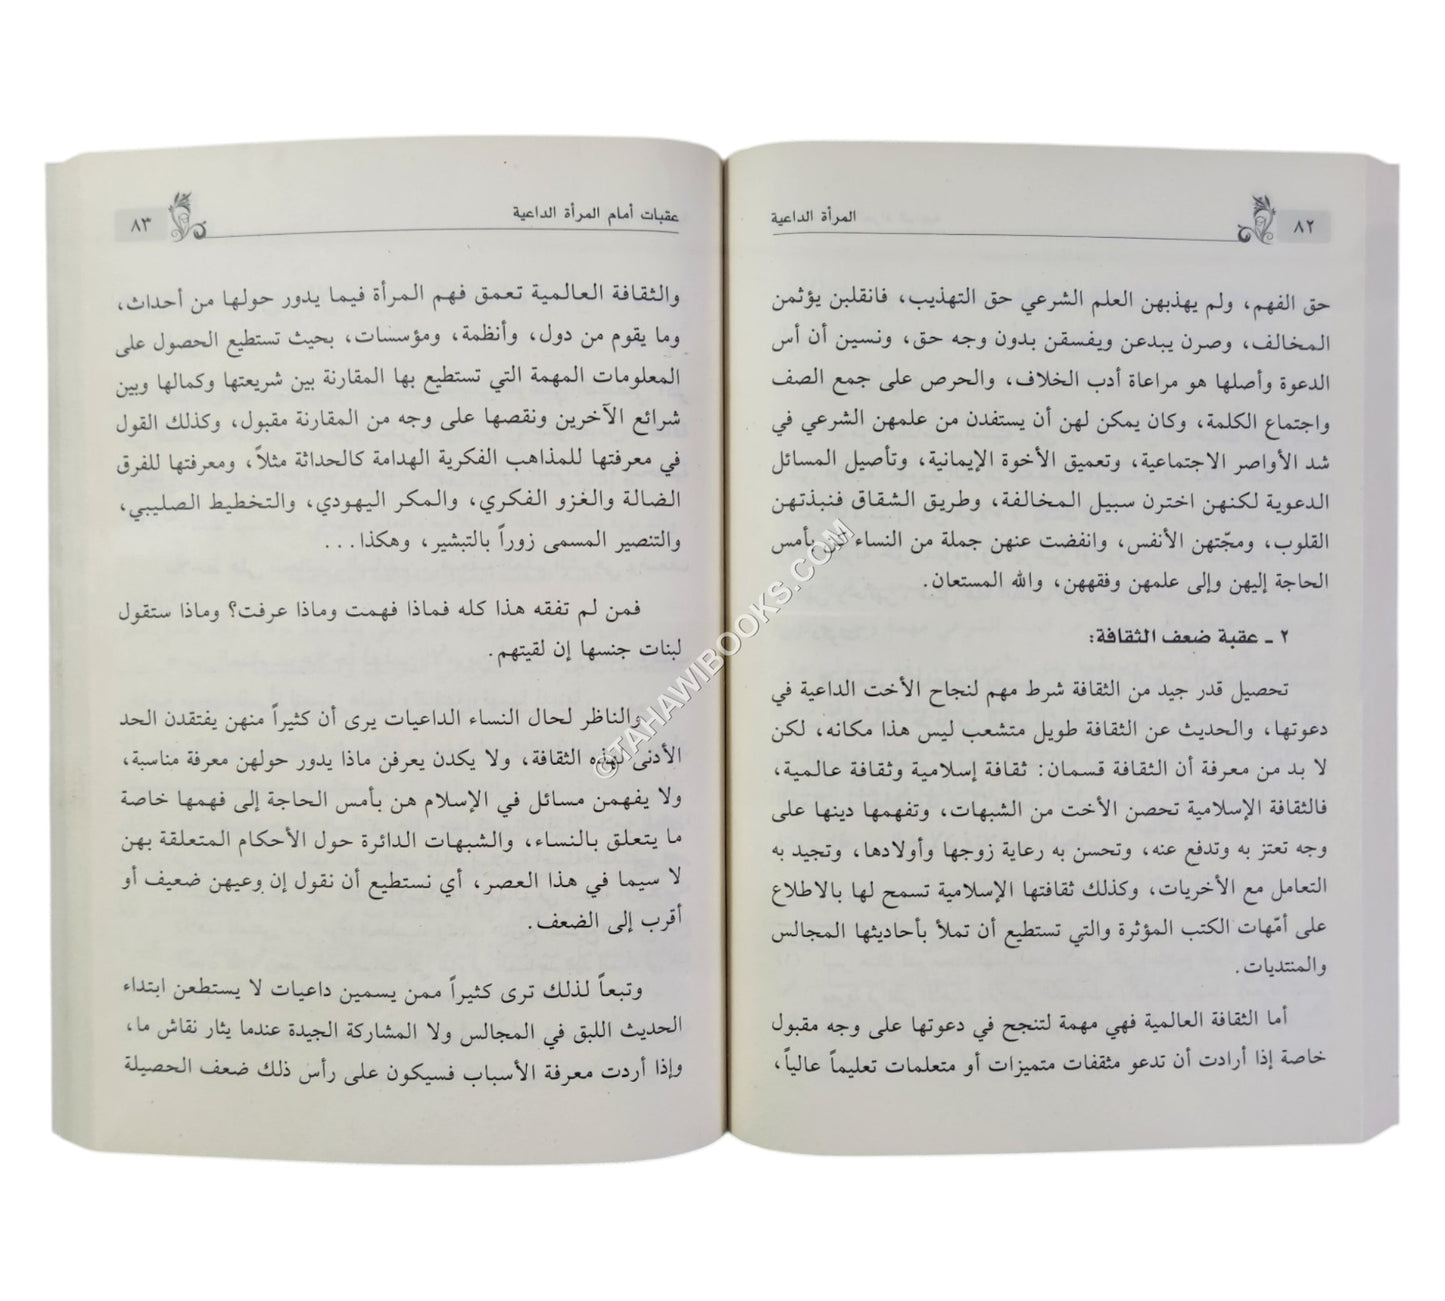 ٨٢
المرأة الداعية
حق الفهم، ولم يهذبهن العلم الشرعي حق التهذيب، فانقلبن يؤثمن
المخالف، وصرن يبدعن ويفسقن بدون وجه حق، ونسين أن أس
الدعوة وأصلها هو مراعاة أدب الخلاف، والحرص على جمع الصف
واجتماع الكلمة، وكان يمكن لهن أن يستفدن من علمهن الشرعي في
شد الأواصر الاجتماعية، وتعميق الأخوة الإيمانية، وتأصيل المسائل
الدعوية لكنهن اخترن سبيل المخالفة، وطريق الشقاق فنبذتهن
القلوب، ومجّتهن الأنفس، وانفضت عنهن جملة من النساء كن بأمس
الحاجة إليهن وإلى علمهن وفقههن، والله المستعان.
٢ ـ عقبة ضعف الثقافة:
تحصيل قدر جيد من الثقافة شرط مهم لنجاح الأخت الداعية في
دعوتها، والحديث عن الثقافة طويل متشعب ليس هذا مكانه، لكن
لا بد من معرفة أن الثقافة قسمان: ثقافة إسلامية وثقافة عالمية،
فالثقافة الإسلامية تحصن الأخت من الشبهات، وتفهمها دينها على
وجه تعتز به وتدفع عنه، وتحسن به رعاية زوجها وأولادها، وتجيد به
التعامل مع الأخريات، وكذلك ثقافتها الإسلامية تسمح لها بالاطلاع
على أمّهات الكتب المؤثرة والتي تستطيع أن تملأ بأحاديثها المجالس
والمنتديات.
أما الثقافة العالمية فهي مهمة لتنجح في دعوتها على وجه مقبول
خاصة إذا أرادت أن تدعو مثقفات متميزات أو متعلمات تعليماً عالياً،
عقبات أمام المرأة الداعية
٨٣
والثقافة العالمية تعمق فهم المرأة فيما يدور حولها من أحداث،
وما يقوم من دول، وأنظمة، ومؤسسات، بحيث تستطيع الحصول على
المعلومات المهمة التي تستطيع بها المقارنة بين شريعتها وكمالها وبين
شرائع الآخرين ونقصها على وجه من المقارنة مقبول، وكذلك القول
في معرفتها للمذاهب الفكرية الهدامة كالحداثة مثلاً، ومعرفتها للفرق
الضالة والغزو الفكري، والمكر اليهودي، والتخطيط الصليبي،
والتنصير المسمى زوراً بالتبشير، وهكذا...
فمن لم تفقه هذا كله فماذا فهمت وماذا عرفت؟ وماذا ستقول
لبنات جنسها إن لقيتهم.
والناظر لحال النساء الداعيات يرى أن كثيراً منهن يفتقدن الحد
الأدنى لهذه الثقافة، ولا يكدن يعرفن ماذا يدور حولهن معرفة مناسبة،
ولا يفهمن مسائل في الإسلام هن بأمس الحاجة إلى فهمها خاصة
ما يتعلق بالنساء، والشبهات الدائرة حول الأحكام المتعلقة بهن
لا سيما في هذا العصر، أي نستطيع أن نقول إن وعيهن ضعيف أو
أقرب إلى الضعف.
وتبعاً لذلك ترى كثيراً ممن يسمين داعيات لا يستطعن ابتداء
الحديث اللبق في المجالس ولا المشاركة الجيدة عندما يثار نقاش ما،
وإذا أردت معرفة الأسباب فسيكون على رأس ذلك ضعف الحصيلة
©TAHAWIBOOKS.COM